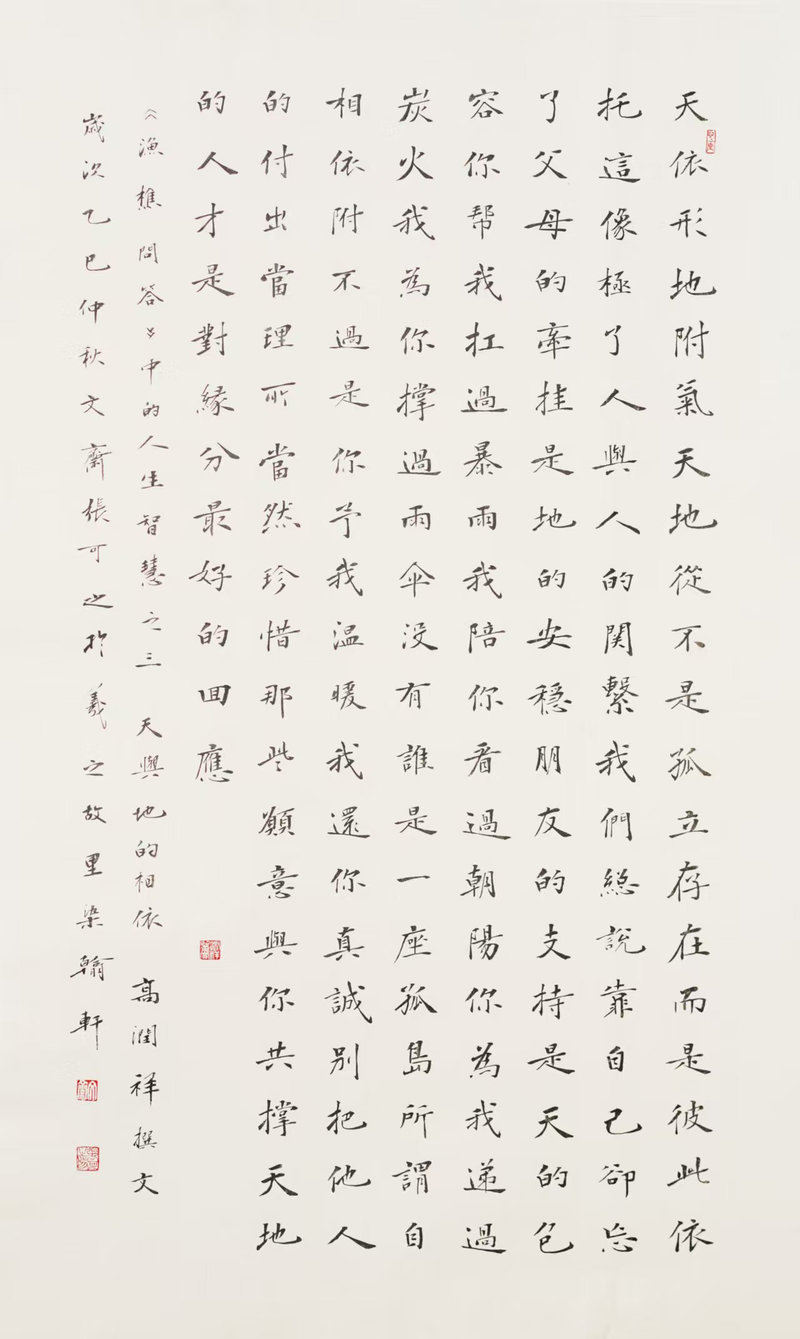 天依形地附氣天地從不是孤立存在而是彼此依
托這像極了人與人的関繫我們総說靠自己卻忘
了父母的牽挂是地的安穩朋友的支持是天的包
容你帮我扛過暴雨我陪你看過朝陽你為我递過
炭火我為你撑過雨傘没有誰是一座孤島所謂自
相依附不過是你予我温暖我還你真誠别把他人
的付出當理所當然珍惜那些願意與你共撑天地
的人才是對緣分最好的回應
《漁樵問答》中的人生智慧之三 天與地的相依 高潤祥撰文
歲次乙巳仲秋文齋張可之於羲之故里染翰軒